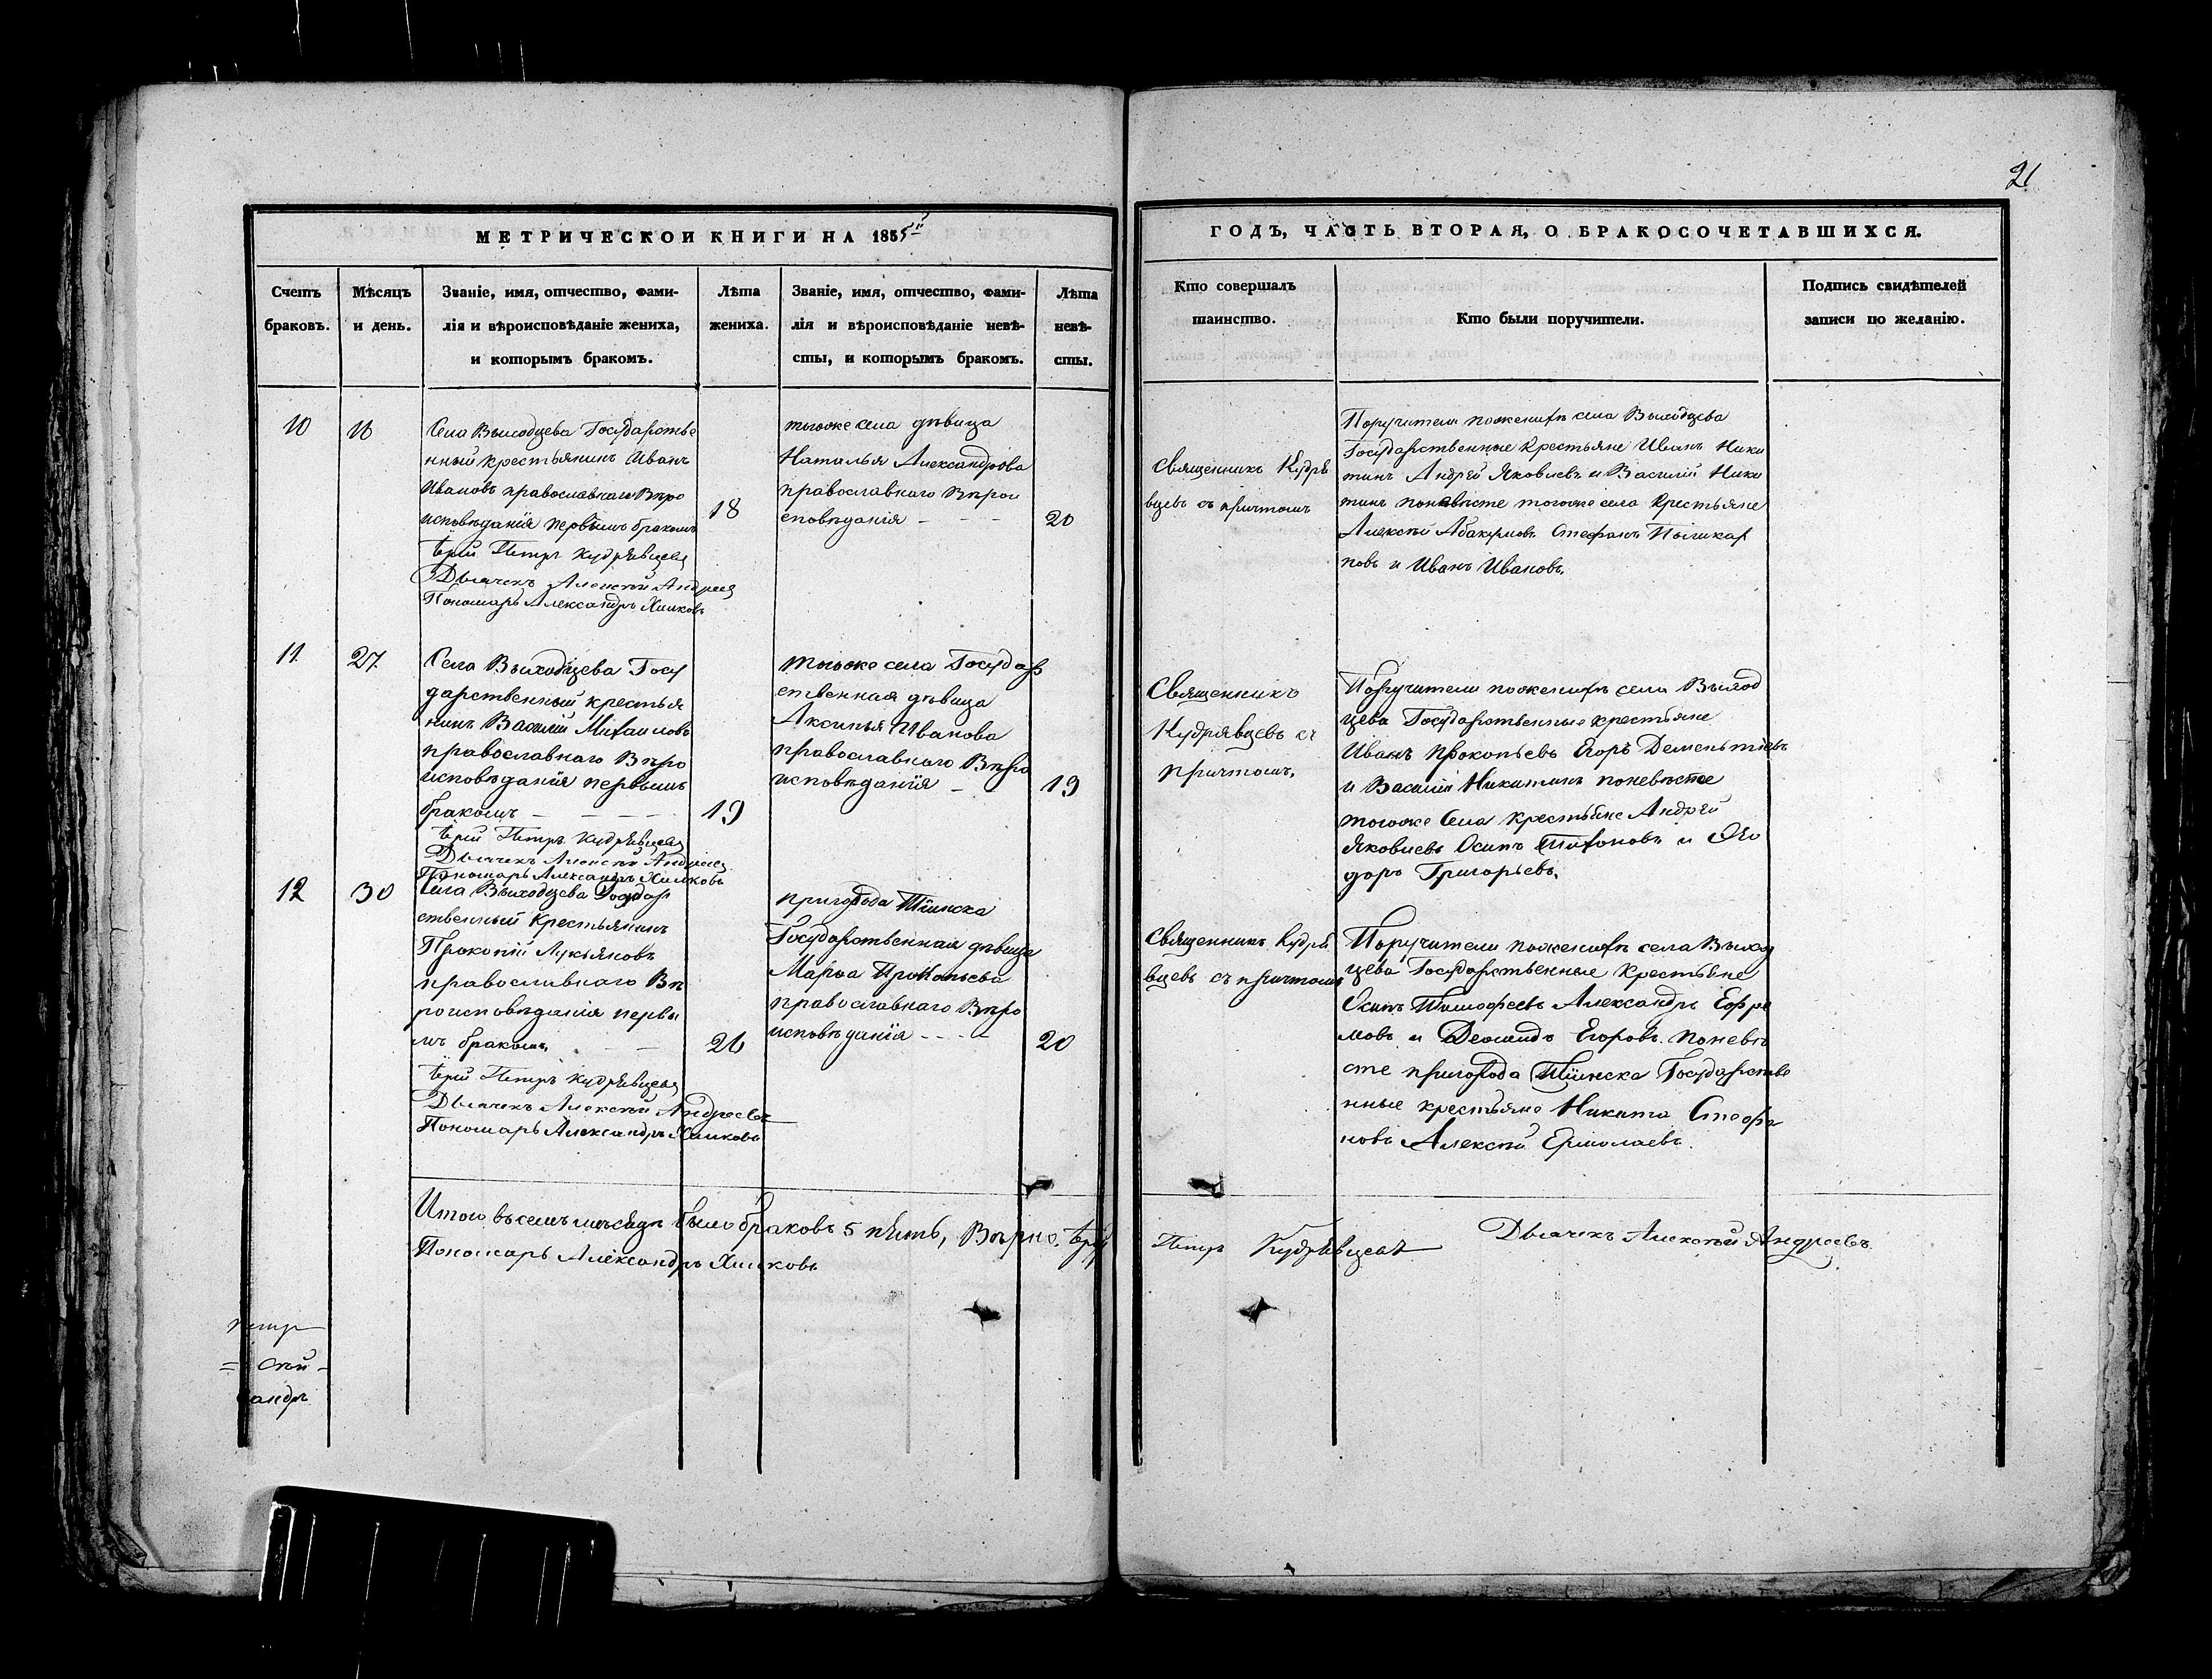 21
МЕТРИЧЕСКОЙ КНИГИ НА 1855й
ГОДЪ, ЧАСТЬ ВТОРАЯ, О БРАКОСОЧЕТАВШИХСЯ.
Счетъ
браковъ.
Мѣсяцъ
и день.
Званіе, имя, отчество, фами-
лія и вѣроисповѣданіе жениха,
и которымъ бракомъ.
Лѣта
жениха.
Званіе, имя, отчество, фами-
лія и вѣроисповѣданіе невѣ-
сты, и которымъ бракомъ.
Лѣта
невѣ-
сты.
Кто совершалъ
таинство.
Кто были поручители.
Подпись свидѣтелей
записи по желанію.
10
Села Выходцева Государстве
нный крестьянинъ Иванъ
Ивановъ православнаго Вѣро
исповѣданія первымъ бракомъ
18
Іерей Петръ Кудрявцевъ
Дьячекъ Алексѣй Андреев
Пономарь Александръ Хилковъ
тогоже села дѣвица
Наталья Александрова
православнаго Вѣрои
сповѣданія - - -
20
Священникъ Кудря
вцевъ съ причтомъ
Поручители пожених села Выходцева
Государственные Крестьяне Иванъ Ники
тинъ Андрей Яковлевъ и Василій Ники
тинъ поневѣсте тогоже села Крестьяне
Алексѣй Абакумовъ Стефанъ
повъ и Иванъ Ивановъ.
11
27
Села Выходцева Госу
дарственный крестья
нинъ Василій Михаиловъ
православнаго Вѣро
исповѣданія первымъ
бракомъ - - - -
19
Іерей Петръ Кудрявцевъ
Дьячекъ Алексѣй Андреев
Пономарь Александръ Хилковъ
тогоже села Государ
ственная дѣвица
Аксинья Иванова
православнаго Вѣро
исповѣданія -
19
Священникъ
Кудрявцевъ съ
причтомъ.
Поручители пожених села Выход
цева Государственные крестьяне
Иванъ Прокопьевъ Егоръ Дементьевъ
и Василій Никитинъ поневѣсте
тогоже Села Крестьяне Андрей
Яковлевъ Осипъ Тихоновъ и Ѳео
доръ Григорьевъ.
12
30
Села Выходцева Государ
ственный Крестьянинъ
Прокопій Лукьяновъ
православнаго Вѣ
роисповѣданія первы
мъ бракомъ. - -
Іерей Петръ Кудрявцевъ
Дьячекъ Алексѣй Андреевъ
Пономарь Александръ Хилковъ
пригорода Тіинска
Государственная дѣвица
Марѳа Прокопьева
православнаго Вѣро
исповѣданія - - - -
20
Священникъ Кудря
вцевъ съ причтомъ
Поручители пожених села Выход
цева Государственные Крестьяне
Осипъ Тимофеевъ Александръ Ефре
мовъ и Егоровъ. поневѣ
сте пригорода Тіинска Государстве
нные крестьяне Никита Стефа
новъ Алексѣй Ермолаевъ.
Итого всемъ мѣсяце было браковъ 5 пять, Вѣрно. Іерей
Петръ Кудрявцевъ Дьячекъ Алексѣй Андреевъ
Пономарь Александръ Хилковъ
Петръ
= сѣй -
сандръ